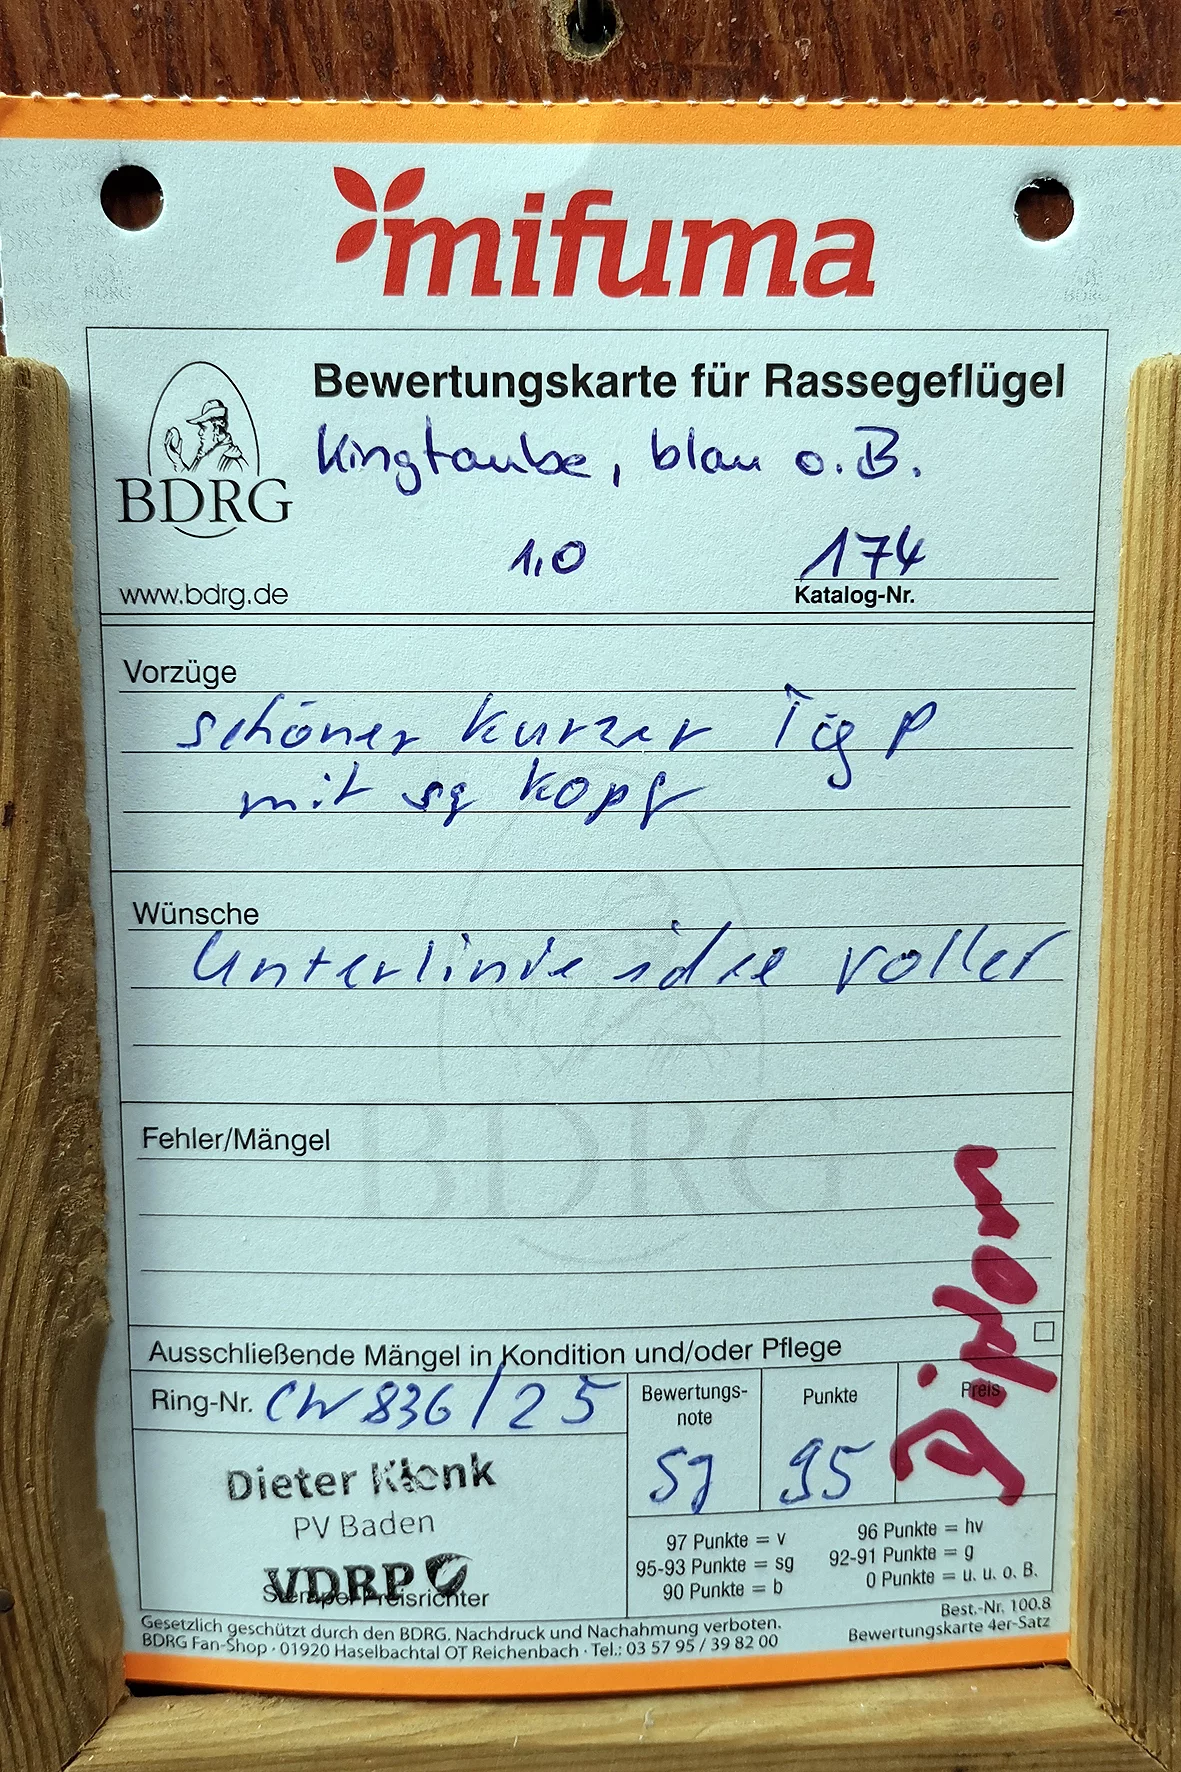 mifuma
Bewertungskarte für Rassegeflügel
Kingtaube, blau o. B.
BDRG
1,0
174
www.bdrg.de
Katalog-Nr.
Vorzüge
schöner kurzer
mit sg Kopf
Wünsche
Unterlinie idee voller
BDRG
Fehler/Mängel
Ausschließende Mängel in Kondition und/oder Pflege
Ring-Nr. CW 836/25
Bewertungs-
note
sg
Punkte
95
Preis
Diplom
Dieter Klenk
PV Baden
VDRP
Stempel Preisrichter
97 Punkte = v
96 Punkte = hv
95-93 Punkte = sg
92-91 Punkte = g
90 Punkte = b
0 Punkte = u. u. o. B.
Gesetzlich geschützt durch den BDRG. Nachdruck und Nachahmung verboten.
BDRG Fan-Shop · 01920 Haselbachtal OT Reichenbach · Tel.: 03 57 95 / 39 82 00
Best.-Nr. 100.8
Bewertungskarte 4er-Satz